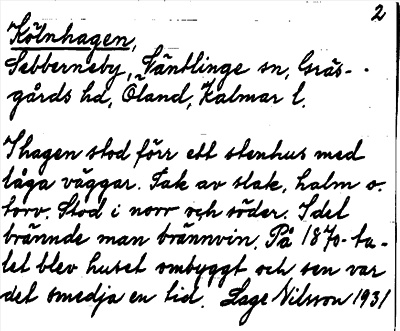 2
Kölnhagen,
Sebberneby, Ventlinge sn, Gräs-
gårds hd, Öland, Kalmar l.
I hagen stod förr ett stenhus med
låga väggar. Tak av slak, halm o.
torv. Stod i norr och söder. I det
brännde man brännvin. På 1870-ta-
let blev huset ombyggt och sen var
det smedja en tid. Lage Nilsson 1931